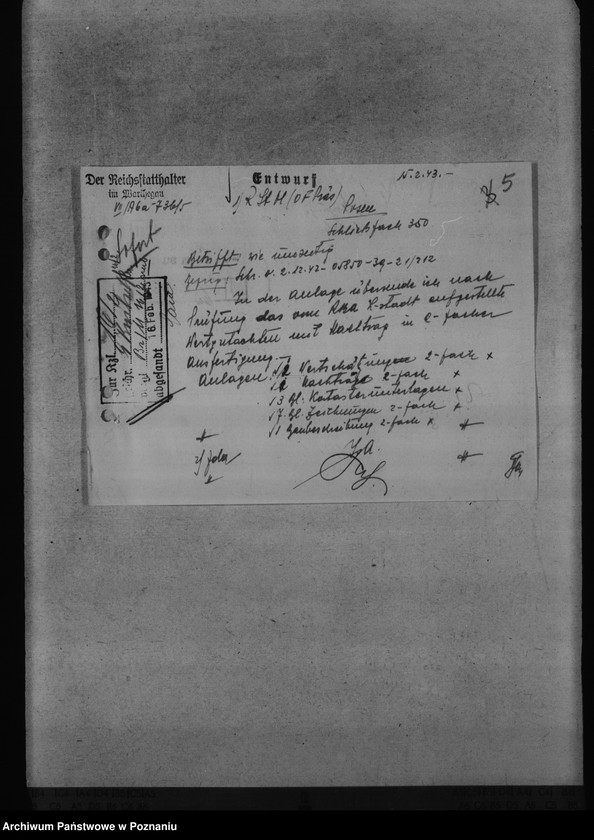 Der Reichsstatthalter
im Warthegau
VII/A6a-736/5
Entwurf
N. 2. 43. –
5
1) R St H / (OF Präs)
Posen
Schließfach 350
Betrifft: wie umseitig
Bezug: Schr. v. 2.12.42 - 05850-39-21/212
In der Anlage übersende ich nach
Prüfung das vom RBA L-stadt aufgestellte
Wertgutachten mit Nachtrag in 2-facher
Ausfertigung.
Anlagen: 12 Wertschätzungen 2-fach x
12 Nachträge 2-fach x
13 Bl. Katasterunterlagen x
17 Bl. Zeichnungen 2-fach x
11 Baubeschreibung 2-fach x
I. A.
2)
Sofort
Zur Kzl.
abgesandt
6. Feb.
Archiwum Państwowe w Poznaniu